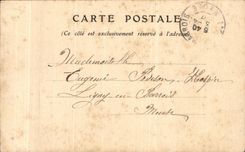 CARTE POSTALE
(Ce côté est exclusivement réservé à l'adresse)
Mademoiselle
Eugénie
Ligny en Barrois
Meuse